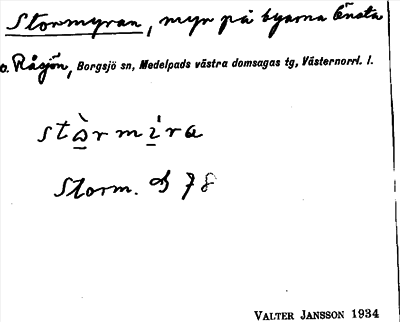 Stormyran, myr på byarna Önsta
o. Råsjön, Borgsjö sn, Medelpads västra domsagas tg, Västernorrl. l.
stàrmira
Storm. 78
VALTER JANSSON 1934